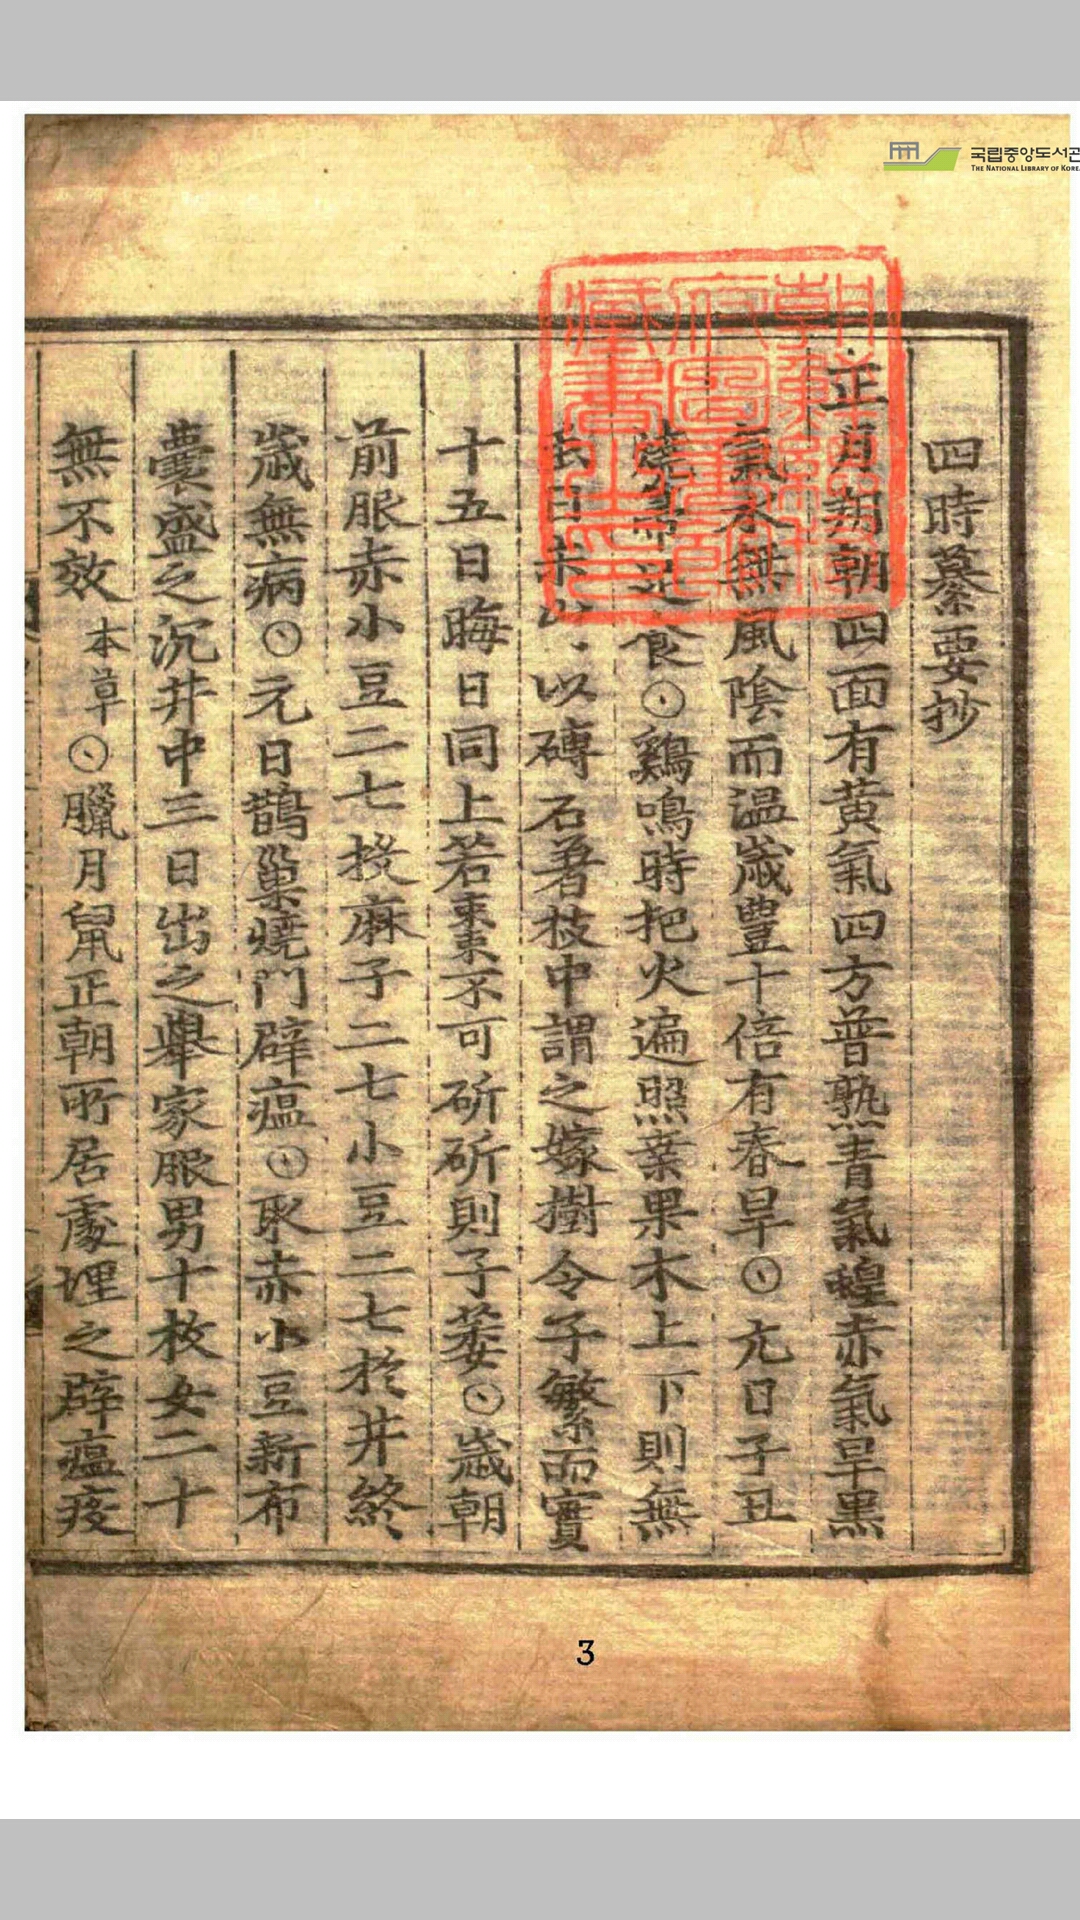 국립중앙도서관
THE NATIONAL LIBRARY OF KOREA
四時纂要抄
正月朔朝四面有黃氣四方普熟靑氣蝗赤氣旱黑
氣水無風陰而温歲豊十倍有春旱○元日子丑
食○鷄鳴時把火遍照桒果木上下則無
日未 以磚石着枝中謂之嫁樹令子繁而實
十五日晦日同上若棗不可斫斫則子萎○歲朝
前服赤小豆二七投麻子二七小豆二七於井終
歲無病○元日鵲巢燒門辟瘟○取赤小豆新布
囊盛之沉井中三日出之擧家服男十枚女二十
無不效本草○臘月鼠正朝所居處埋之辟瘟疫
朝鮮總督府圖書館藏書之印
3